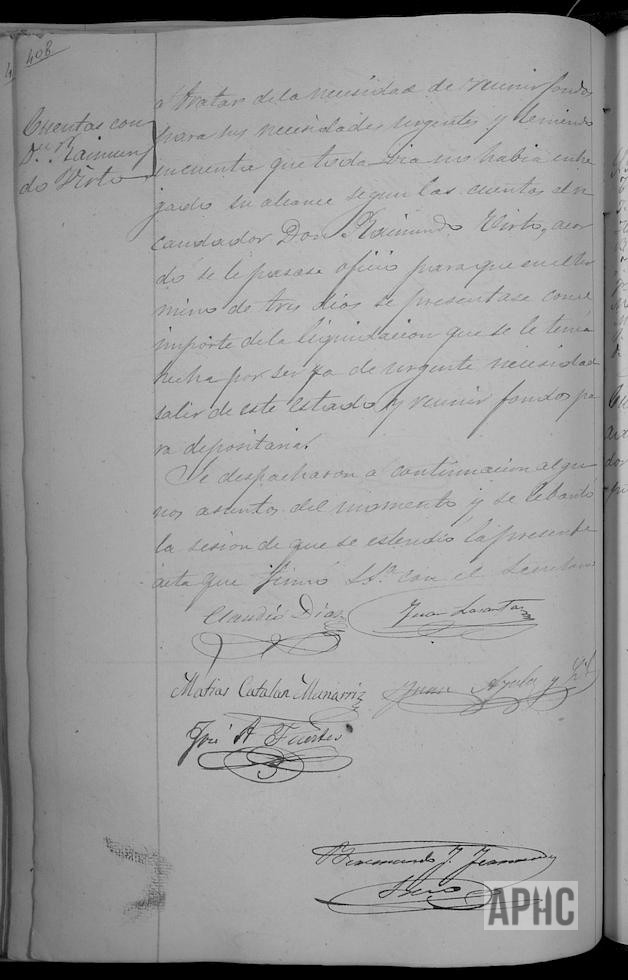 408
Cuentas con
Dn Raimun
do Virto
a tratar de la necesidad de reunir fondos
para sus necesidades urgentes y teniendo
en cuenta que toda via no habia entre
gado su alcance segun las cuentas el re
caudador Don Raimundo Virto, acor
dó se le pasase oficio para que en el ter
mino de tres dias se presentase con el
importe de la liquidacion que se le tenia
hecha por ser ya de urgente necesidad
salir de este estado y reunir fondos pa
ra depositaria.
Se despacharon a continuacion algu
nos asuntos del momento y se lebantó
la sesion de que se estendió la presente
acta que firmó SSª con el Secretario
Claudio Diaz
Juan Lasanta
Matias Catalan Munarriz
Juan Ayala y Gil
José A Fuertes
Secrio
APHC